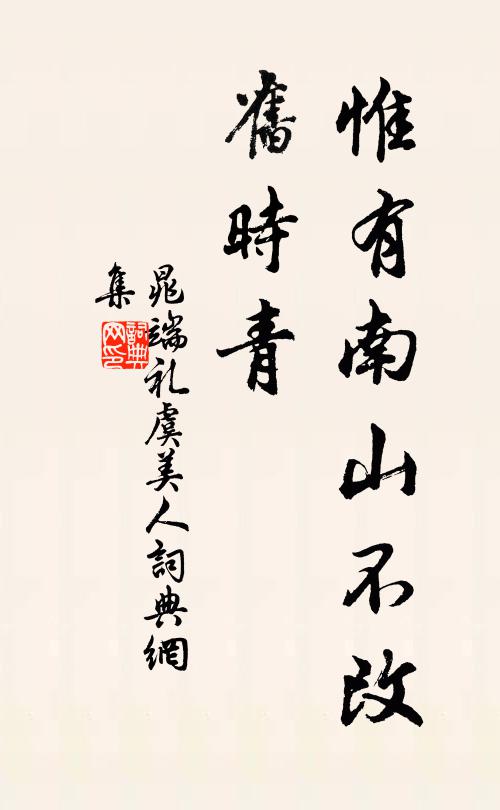 惟有南山不改
舊時青
晁端礼虞美人詞典網
集
詞典
网印